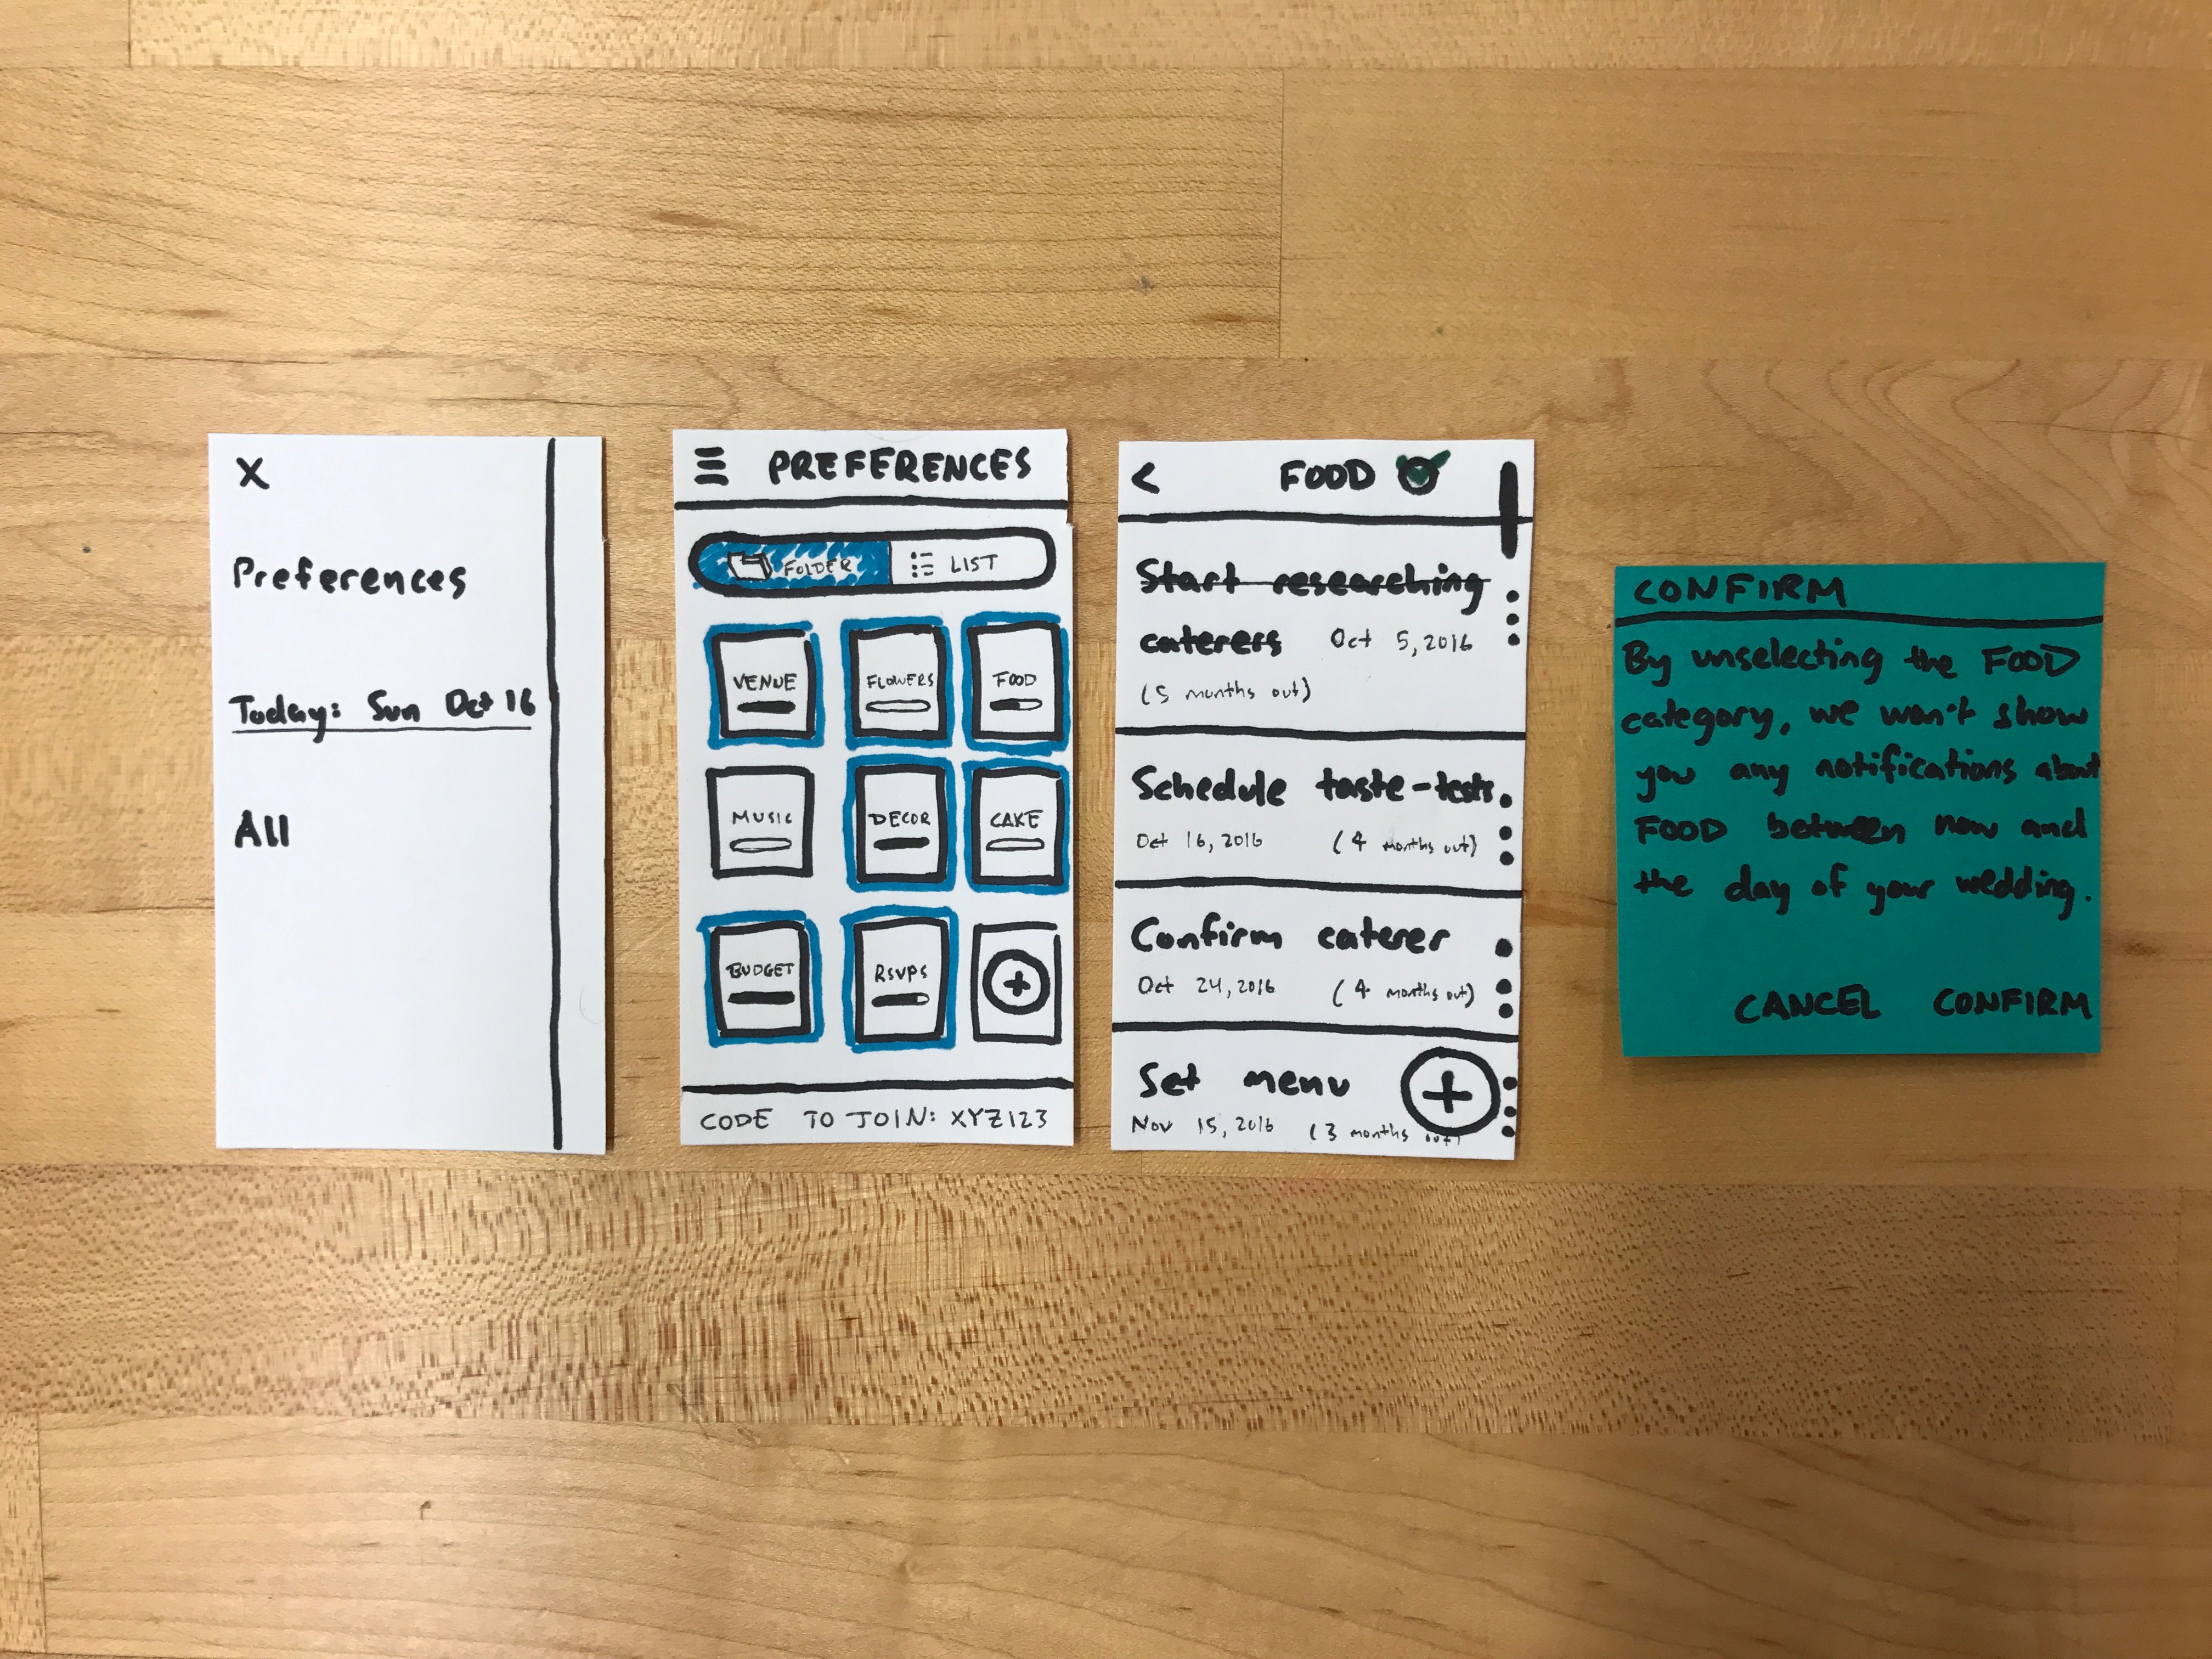 X
Preferences
Today: Sun Oct 16
All
PREFERENCES
FOLDER
LIST
VENUE
FLOWERS
FOOD
MUSIC
DECOR
CAKE
BUDGET
RSVPS
+
CODE TO JOIN: XYZ123
< FOOD
Start researching
caterers Oct 5, 2016
(5 months out)
Schedule taste-tests
Oct 16, 2016 (4 months out)
Confirm caterer
Oct 24, 2016 (4 months out)
Set menu +
Nov 15, 2016 (3 months out)
CONFIRM
By unselecting the FOOD
category, we won't show
you any notifications about
FOOD between now and
the day of your wedding.
CANCEL CONFIRM